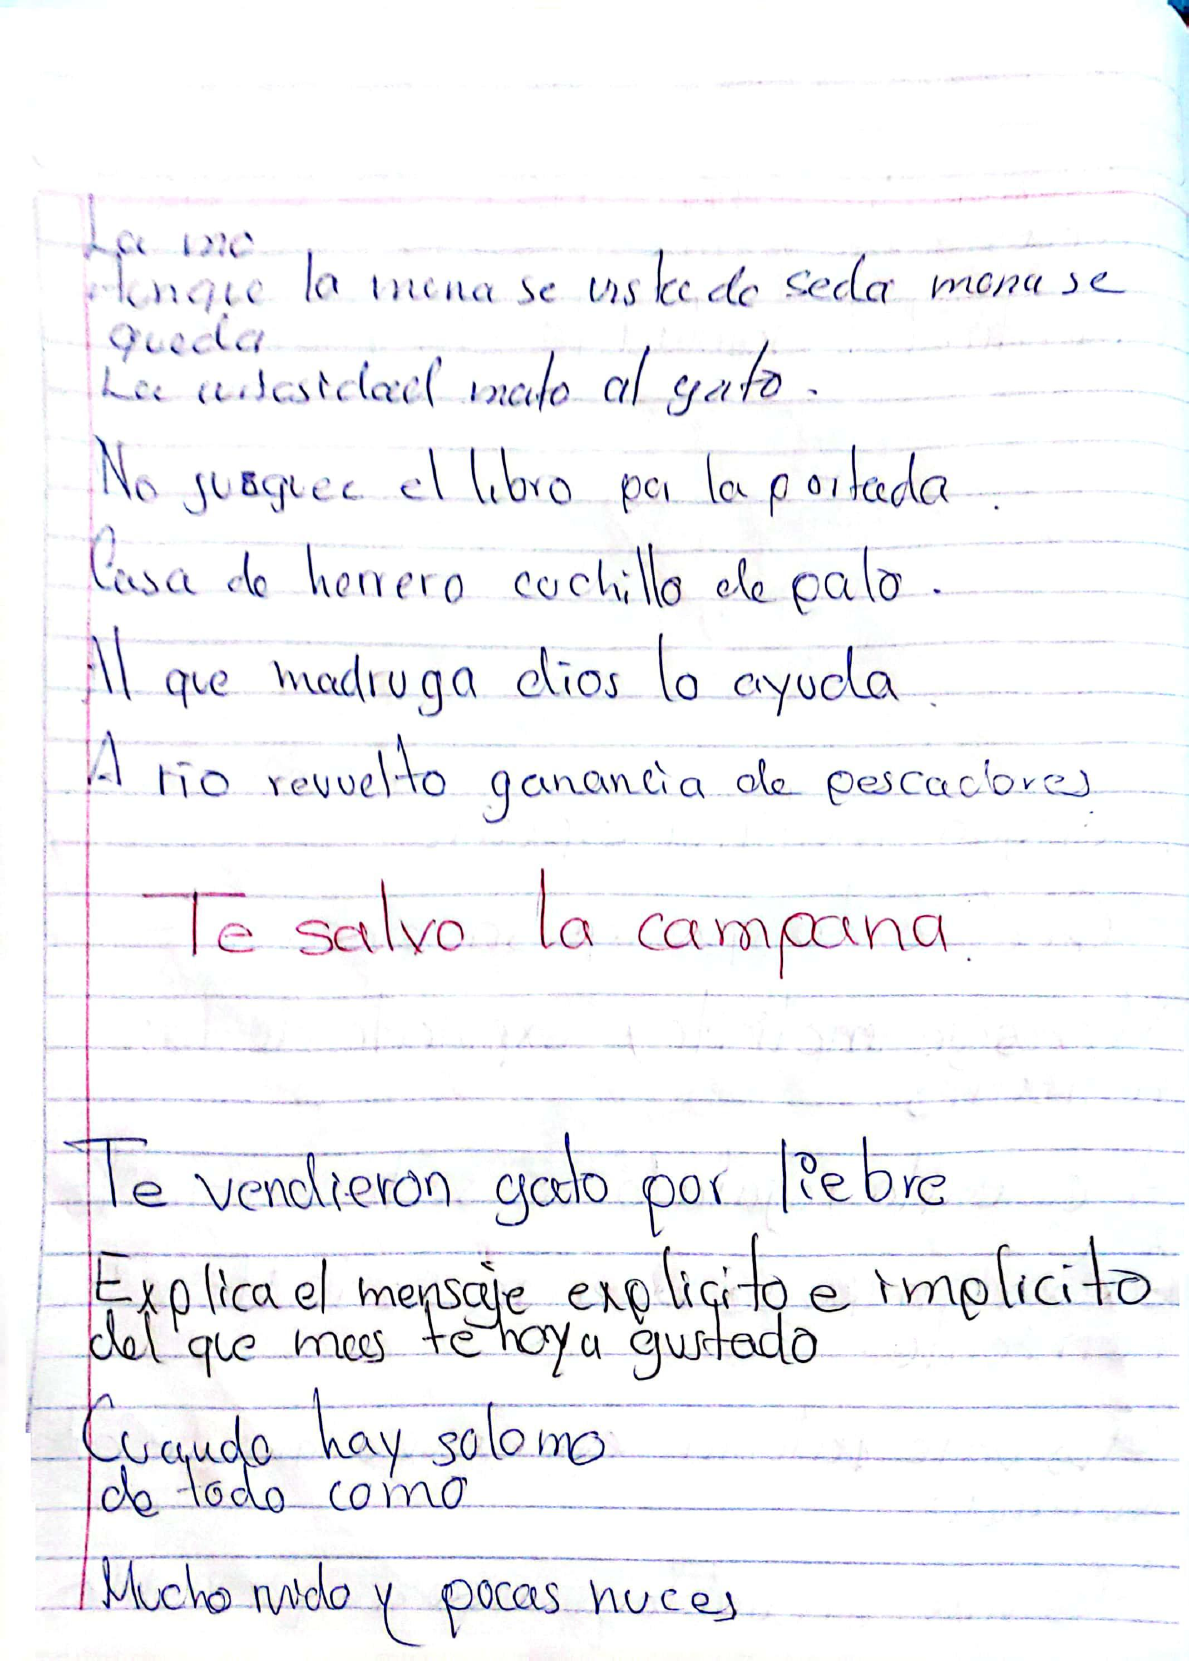 La mo
Aunque la mona se viste de seda mona se
queda
La mato al gato.
No jusguee el libro por la portada.
Casa de herrero cuchillo de palo.
Al que madruga dios lo ayuda.
A rio revuelto ganancia de pescadores.
Te salvo la campana.
Te vendieron gato por liebre
Explica el mensaje explicito e implicito
del que mas te haya gustado
Cuando hay solomo
de todo como
Mucho ruido y pocas nuces